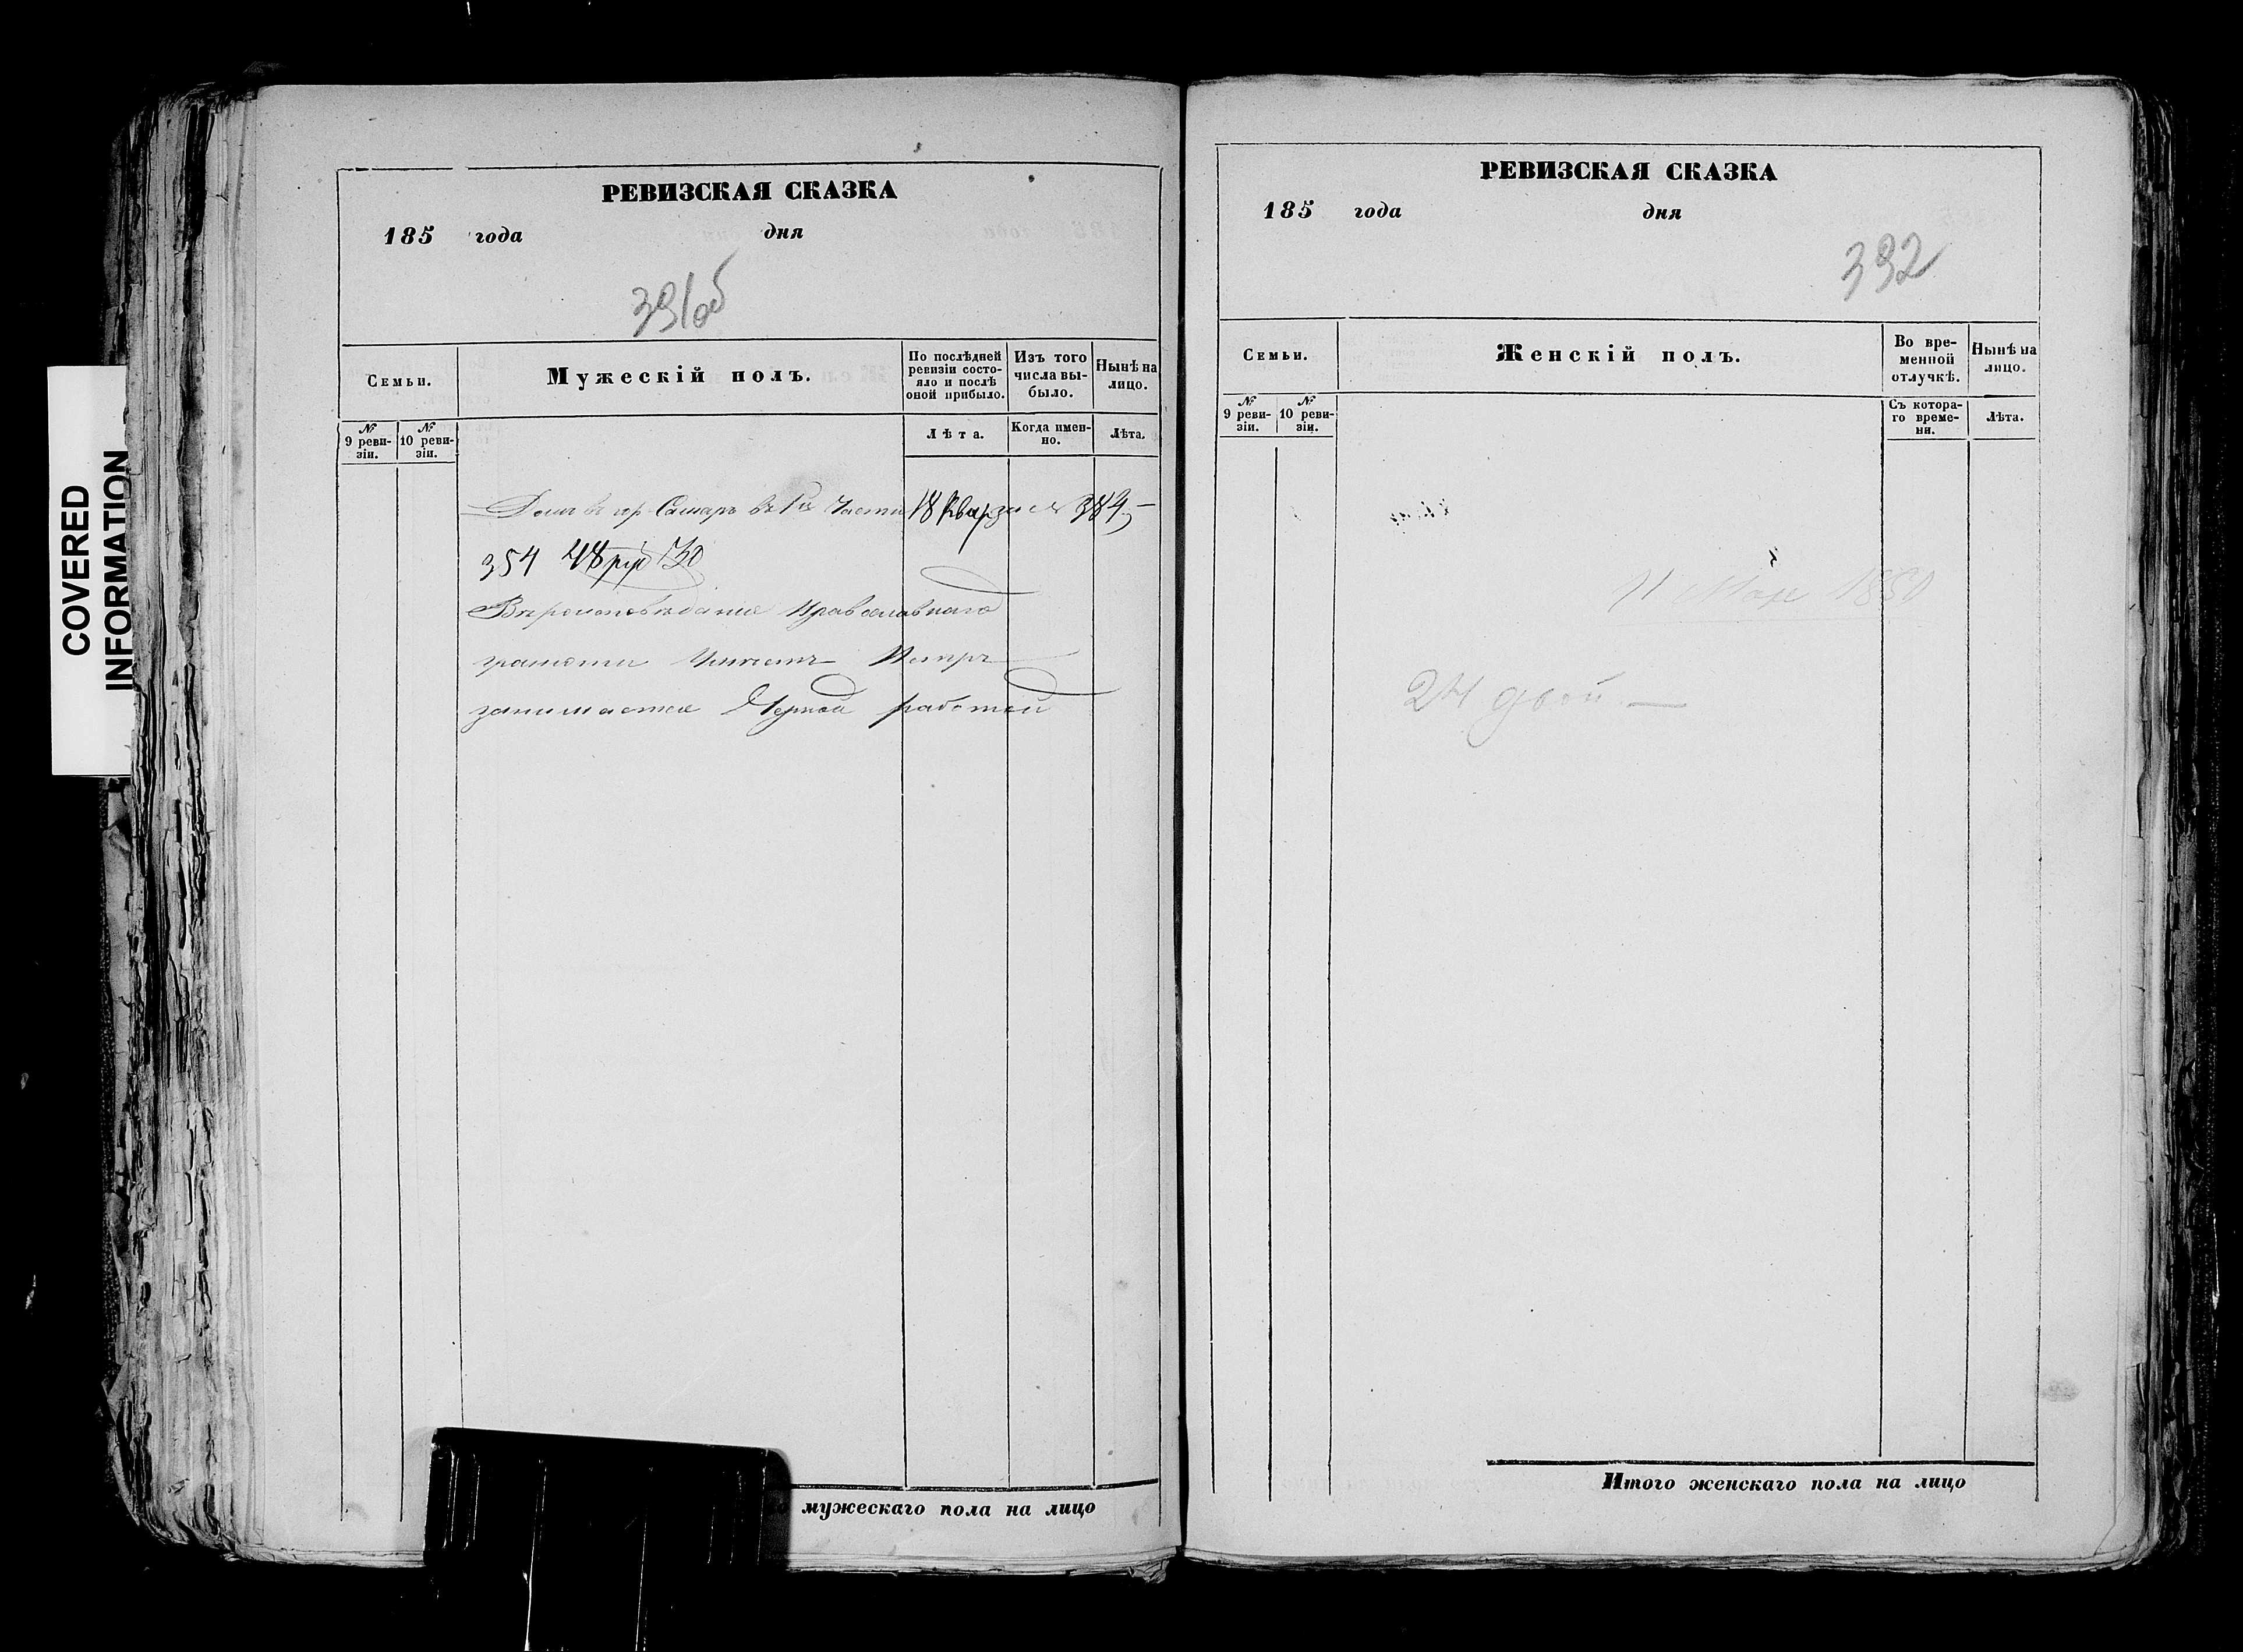 COVERED
INFORMATION
РЕВИЗСКАЯ СКАЗКА
185 года дня
391об
Семьи.
Мужескій полъ.
По послѣдней ревизіи состояло и послѣ оной прибыло.
Изъ того числа выбыло.
Нынѣ на лицо.
№ 9 ревизіи.
№ 10 ревизіи.
Лѣта.
Когда именно.
Лѣта.
Домъ въ гор Самарѣ въ 1й Части 18 Квар
354 48 руб
Вѣроисповѣданія Православнаго
грамоти Умѣетъ Петръ
занимается Черной работой
мужескаго пола на лицо
РЕВИЗСКАЯ СКАЗКА
185 года дня
392
Семьи.
Женскій полъ.
Во временной отлучкѣ.
Нынѣ на лицо.
№ 9 ревизіи.
№ 10 ревизіи.
Съ котораго времени.
Лѣта.
Итого женскаго пола на лицо